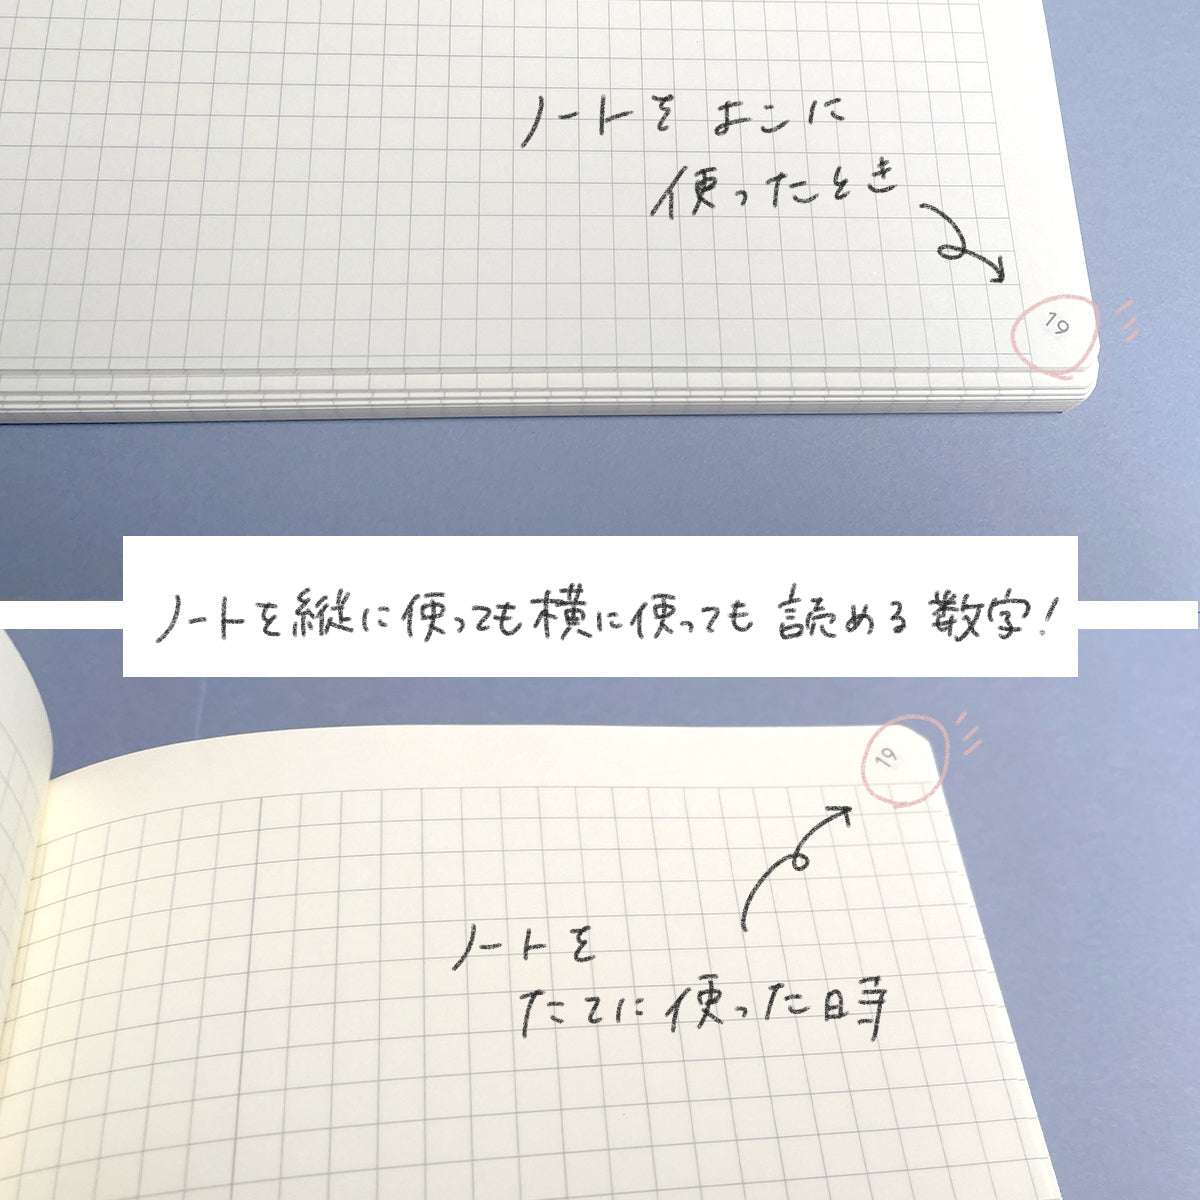 ノートをよこに
使ったとき
19
ノートを縦に使っても横に使っても読める数字!
19
ノートを
たてに使った時